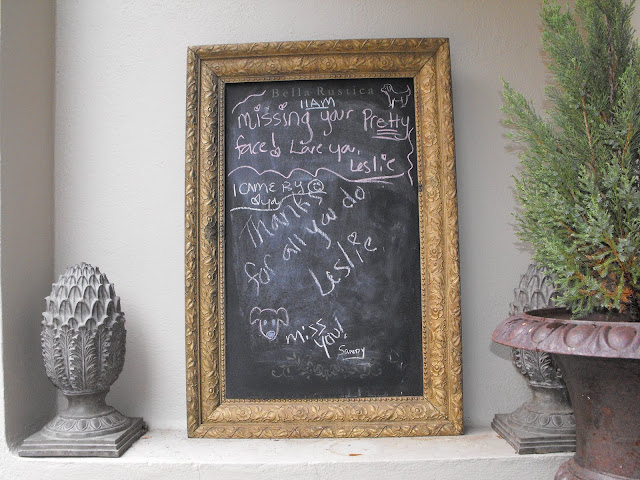 Bella Rustica
11AM
missing your Pretty
face! Love you,
Leslie
I CAME BY
Thanks
for all you do
Leslie.
miss
you!
Sandy